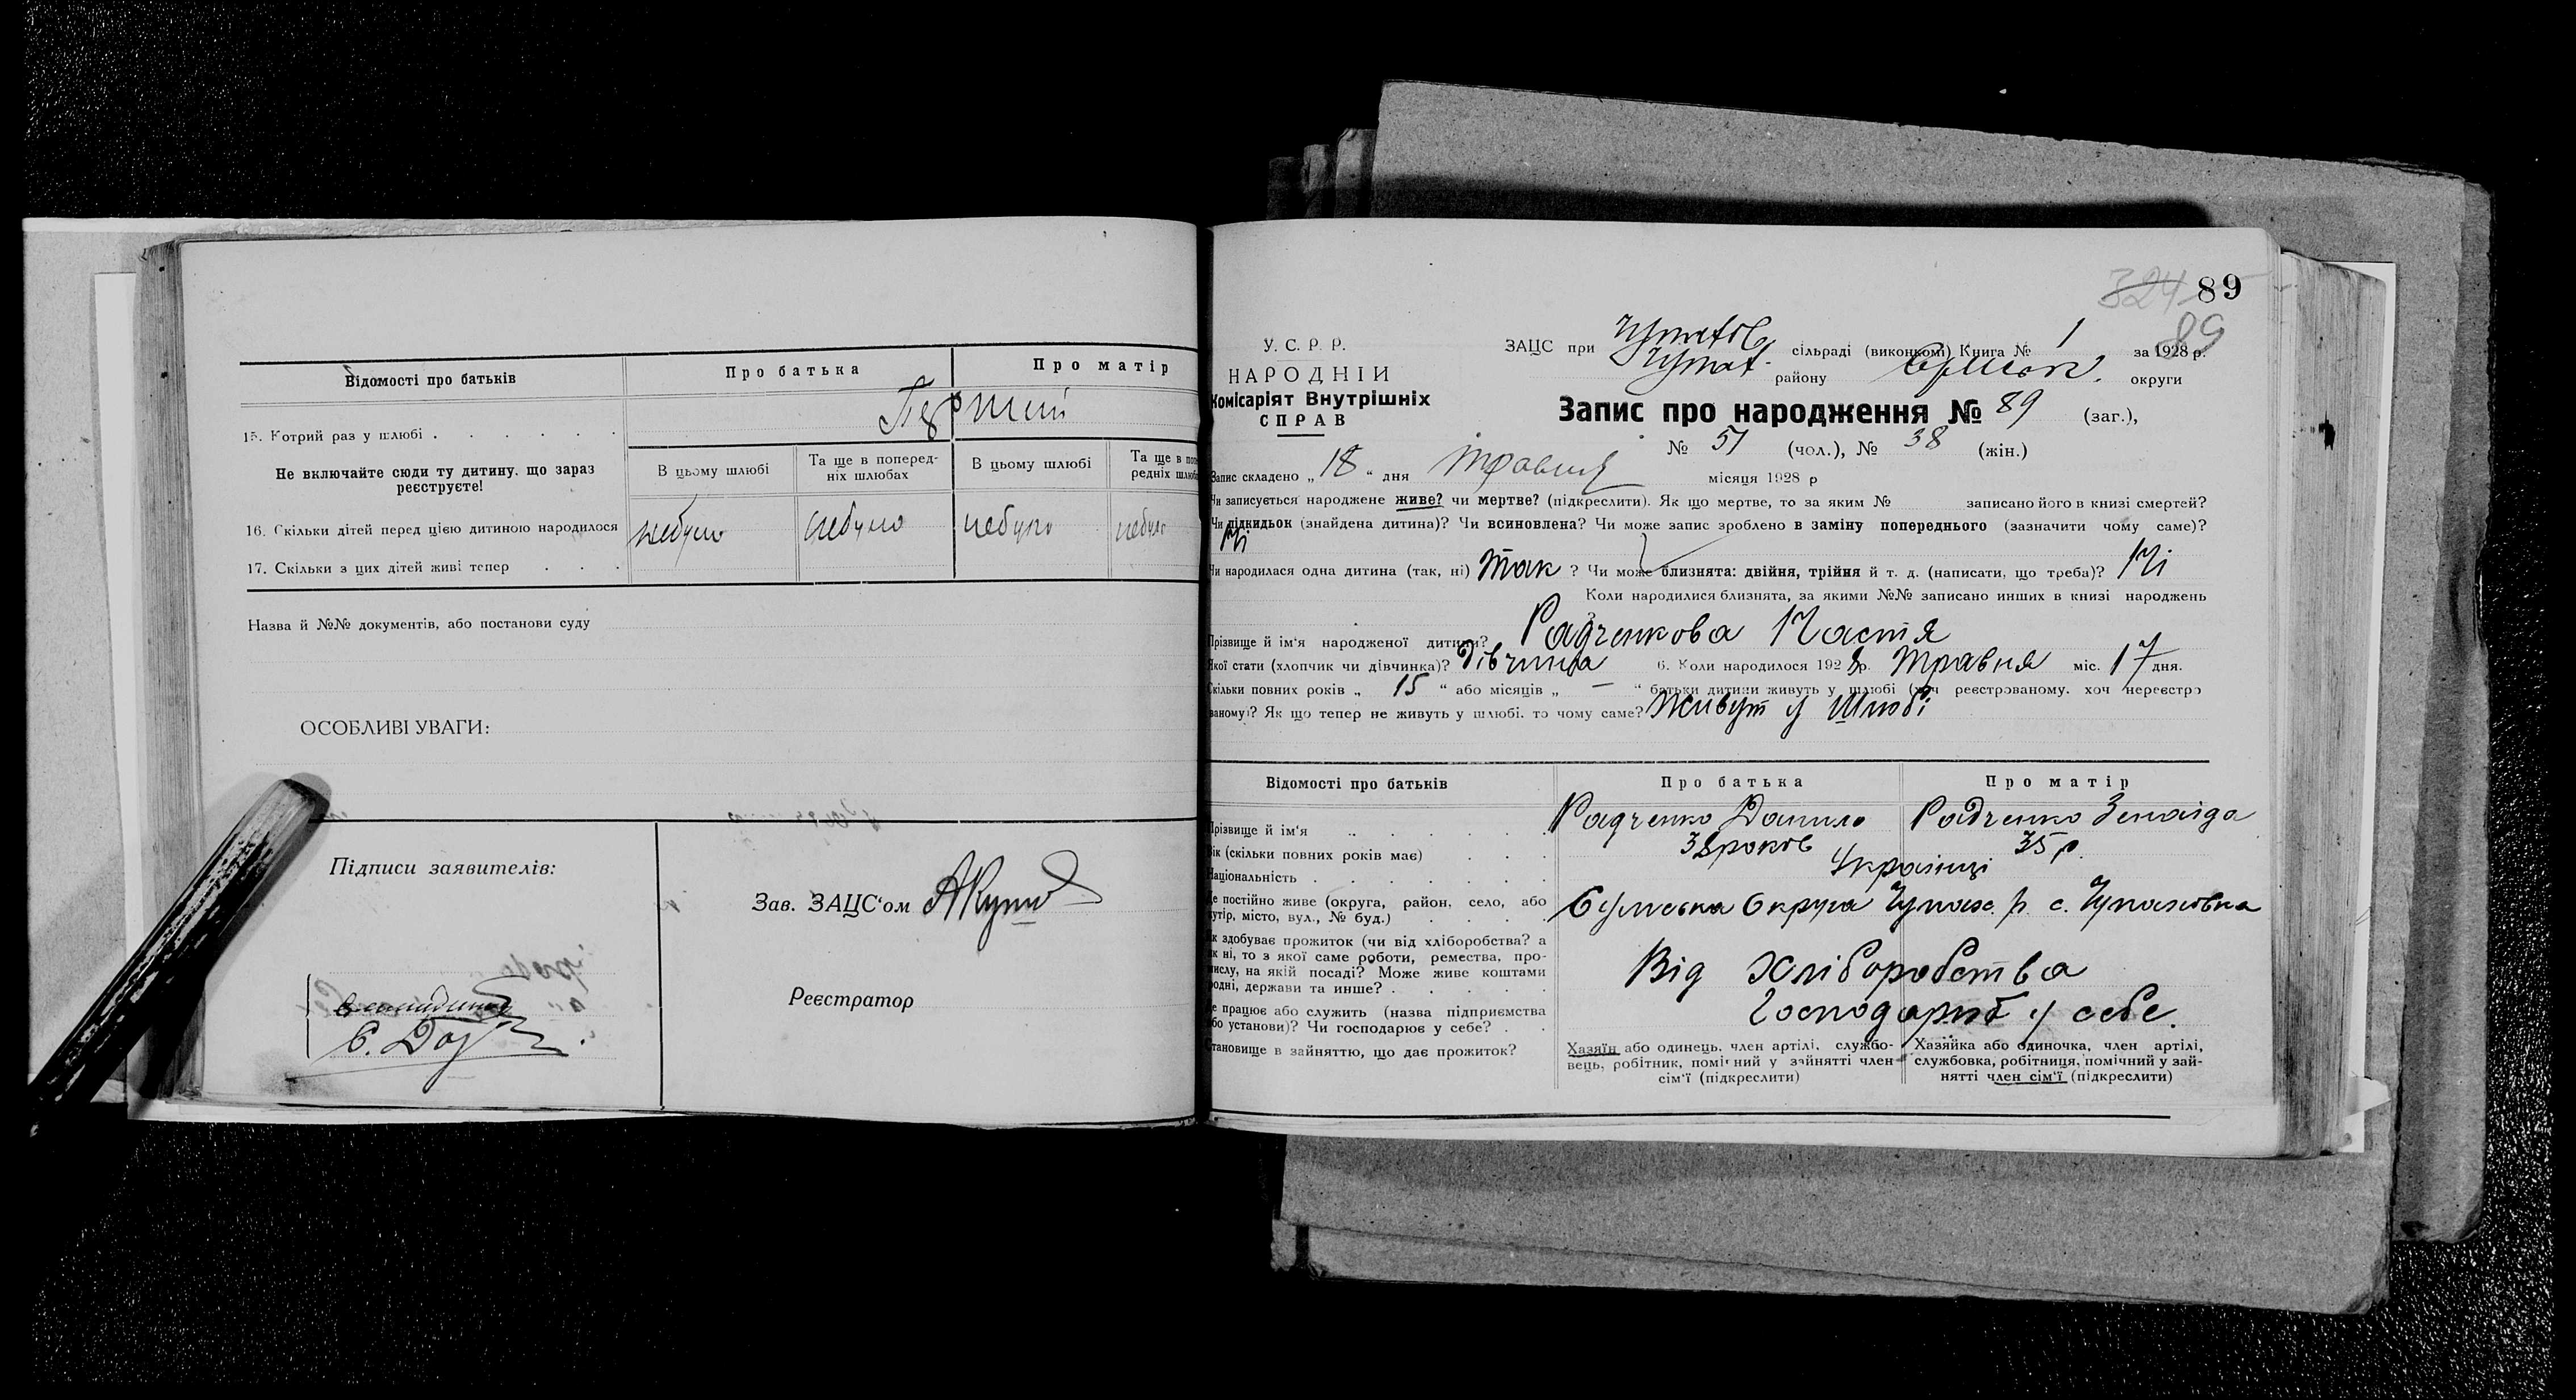 Відомості про батьків
Про батька
Про матір
15. Котрий раз у шлюбі
Перший
Не включайте сюди ту дитину, що зараз реєструєте!
В цьому шлюбі
Та ще в поперед-
ніх шлюбах
В цьому шлюбі
Та ще в попе
редніх шлюба
16. Скільки дітей перед цією дитиною народилося
небуло
небуло
небуло
небуло
17. Скільки з цих дітей живі тепер
Назва й №№ документів, або постанови суду
ОСОБЛИВІ УВАГИ:
Підписи заявителів:
Зав. ЗАЦС'ом
Реєстратор
324 89
89
У. С. Р. Р.
НАРОДНІЙ
Комісаріят Внутрішніх
СПРАВ
ЗАЦС при сільраді (виконкомі) Книга № 1 за 1928 р.
району округи
Запис про народження № 89 (заг.),
№ 51 (чол.), № 38 (жін.)
Запис складено „18" дня Травня місяця 1928 р
Чи записується народжене живе? чи мертве? (підкреслити). Як що мертве, то за яким № записано його в книзі смертей?
Чи підкидьок (знайдена дитина)? Чи всиновлена? Чи може запис зроблено в заміну попереднього (зазначити чому саме)?
Ні
Чи народилася одна дитина (так, ні) Так ? Чи може близнята: двійня, трійня й т. д. (написати, що треба)? Ні
Коли народилися близнята, за якими №№ записано инших в книзі народжень
?
Прізвище й ім'я народженої дитини? Радченкова Настя
Якої стати (хлопчик чи дівчинка)? Дівчинка 6. Коли народилося 1928 р. Травня міс. 17 дня.
Скільки повних років „ 15 " або місяців „ — " батьки дитини живуть у шлюбі (хоч реєстрованому, хоч нереєстро
ваному)? Як що тепер не живуть у шлюбі, то чому саме? Живут у Шлюбі
Відомості про батьків
Про батька
Про матір
Прізвище й ім'я
Радченко Данило
Радченко Зенаіда
Вік (скільки повних років має)
38 роков
35 р.
Національність
Українці
Де постійно живе (округа, район, село, або
хутір, місто, вул., № буд.)
Сумська Округа Чупах. р. с. Чупаховка
Як здобуває прожиток (чи від хліборобства? а
як ні, то з якої саме роботи, ремества, про-
мислу, на якій посаді? Може живе коштами
родні, держави та инше?
Від хліборобства
Де працює або служить (назва підприємства
або установи)? Чи господарює у себе?
Господарют у себе.
Становище в зайняттю, що дає прожиток?
Хазяїн або одинець, член артілі, службо-
вець, робітник, помічний у зайнятті член
сім'ї (підкреслити)
Хазяйка або одиночка, член артілі,
службовка, робітниця, помічний у зай-
нятті член сім'ї (підкреслити)